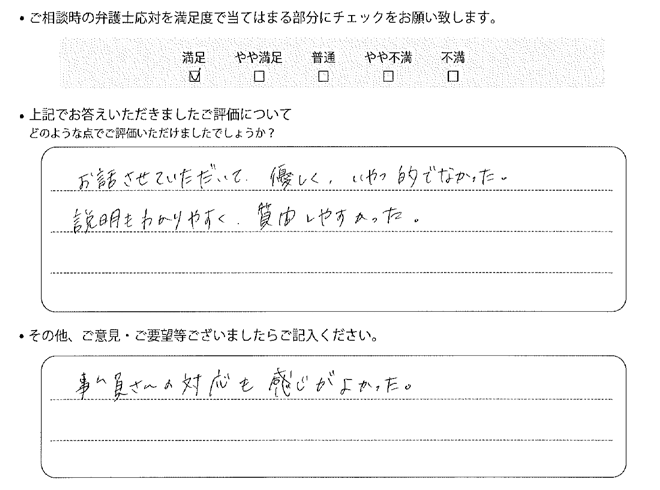 • ご相談時の弁護士応対を満足度で当てはまる部分にチェックをお願い致します。
満足 やや満足 普通 やや不満 不満
☑ □ □ □ □
• 上記でお答えいただきましたご評価について
どのような点でご評価いただけましたでしょうか？
お話させていただいて、優しく、いやつ的でなかった。
説明もわかりやすく、質問しやすかった。
• その他、ご意見・ご要望等ございましたらご記入ください。
事ム員さんの対応も感じがよかった。